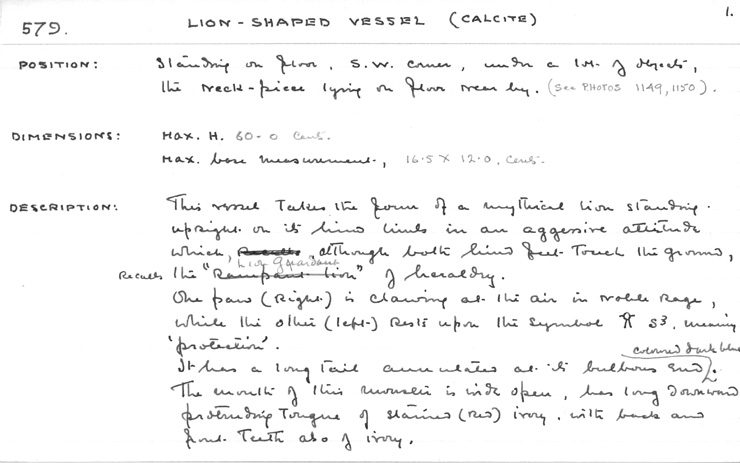 1.
579. LION-SHAPED VESSEL (CALCITE)
POSITION: Standing on floor, S.W. corner, under a lot of objects,
the neck-piece lying on floor near by. (See PHOTOS 1149, 1150).
DIMENSIONS: Max. H. 60.0 Cents.
Max. base measurement, 16.5 X 12.0. Cents.
DESCRIPTION: This vessel takes the form of a mythical lion standing
upright on its hind limbs in an aggressive attitude
which, although both hind feet touch the ground,
Lion Guardant
Recalls the "Rampant lion" of heraldry.
One paw (Right) is clawing at the air in noble rage,
while the other (left) rests upon the symbol S3, meaning
'protection'.
coloured dark blue
It has a long tail annulated at its bulbous end.
The mouth of this monster is wide open, has long downward
protruding tongue of stained (red) ivory, with back and
front teeth also of ivory.